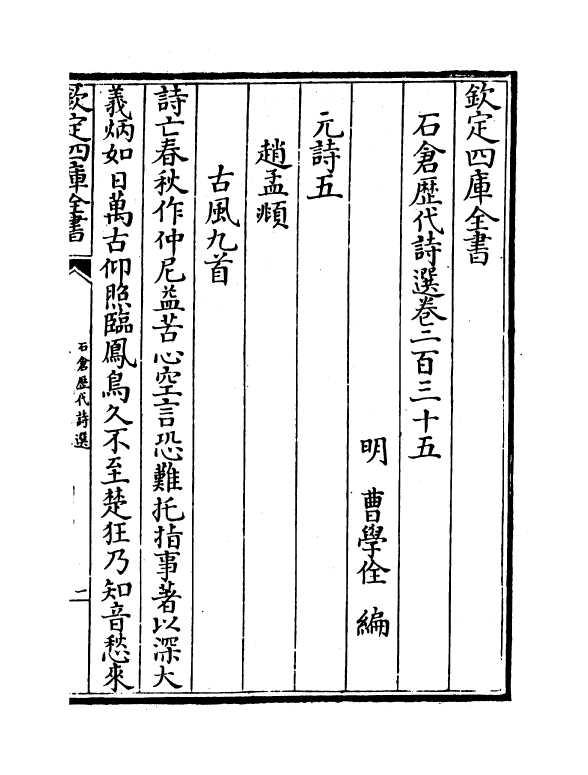 欽定四庫全書
石倉歷代詩選卷二百三十五
明　曹學佺　編
元詩五
趙孟頫
古風九首
詩亡春秋作仲尼益苦心空言恐難托指事著以深大
義炳如日萬古仰照臨鳳鳥久不至楚狂乃知音愁來
欽定四庫全書
石倉歷代詩選